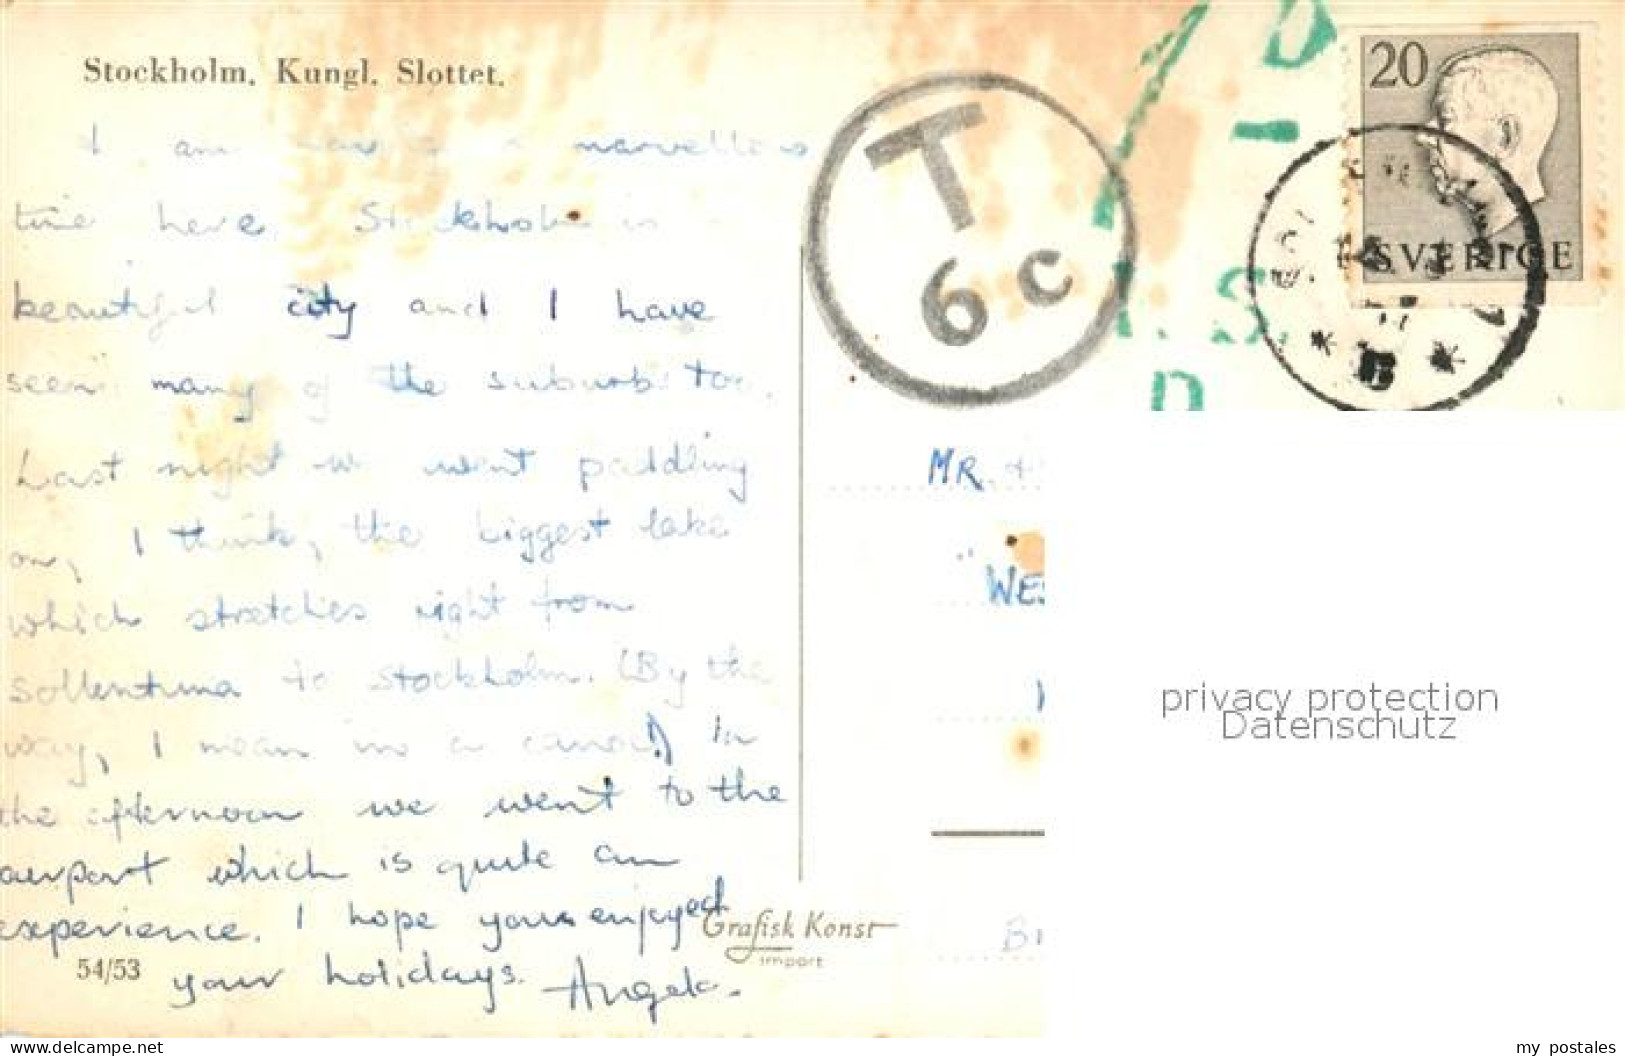 Stockholm. Kungl. Slottet.
I am a marvellous
time here. Stockholm is
beautiful city and I have
seen many of the suburbs too.
Last night we went paddling
on, I think, the biggest lake
which stretches right from
Sollentuna to Stockholm. (By the
way, I mean in a canoe!) In
the afternoon we went to the
airport which is quite an
experience. I hope you enjoyed
your holidays. Angela.
54/53
Grafisk Konst
import
T
6 c
20
SVERIGE
MR.
privacy protection
Datenschutz
www.delcampe.net
my_postales